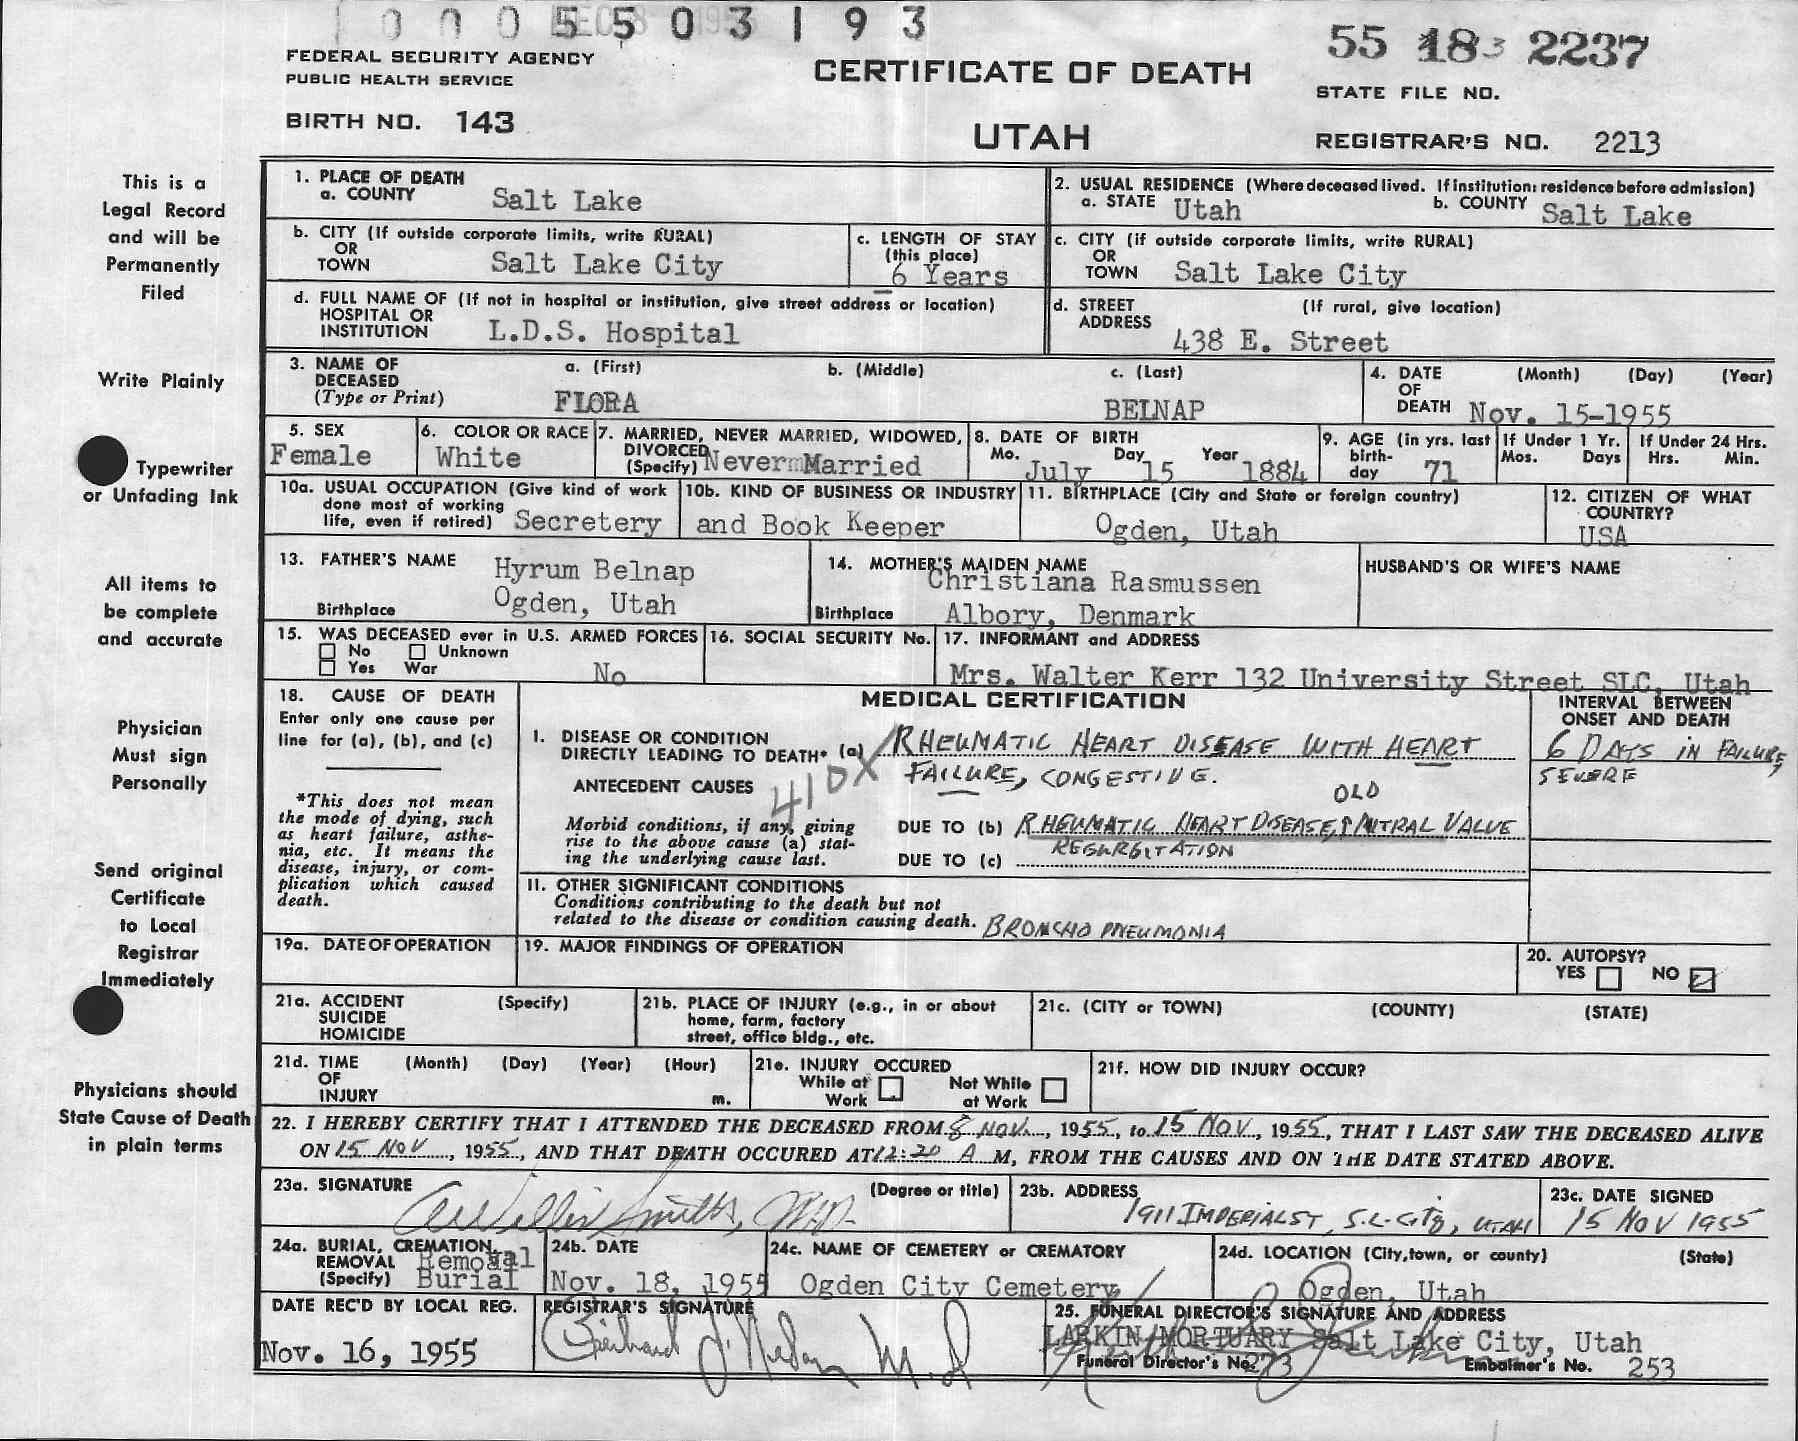 0 0 0 5 5 0 3 1 9 3
55 18 3 2237
FEDERAL SECURITY AGENCY
PUBLIC HEALTH SERVICE
CERTIFICATE OF DEATH
STATE FILE NO.
BIRTH NO. 143
UTAH
REGISTRAR'S NO. 2213
This is a
Legal Record
and will be
Permanently
Filed
Write Plainly
Typewriter
or Unfading Ink
All items to
be complete
and accurate
Physician
Must sign
Personally
Send original
Certificate
to Local
Registrar
Immediately
Physicians should
State Cause of Death
in plain terms
1. PLACE OF DEATH
a. COUNTY Salt Lake
2. USUAL RESIDENCE (Where deceased lived. If institution: residence before admission)
a. STATE Utah b. COUNTY Salt Lake
b. CITY (If outside corporate limits, write RURAL)
OR
TOWN Salt Lake City
c. LENGTH OF STAY
(this place)
6 Years
c. CITY (if outside corporate limits, write RURAL)
OR
TOWN Salt Lake City
d. FULL NAME OF (If not in hospital or institution, give street address or location)
HOSPITAL OR
INSTITUTION L.D.S. Hospital
d. STREET (If rural, give location)
ADDRESS 438 E. Street
3. NAME OF a. (First) b. (Middle) c. (Last)
DECEASED
(Type or Print) FLORA BELNAP
4. DATE (Month) (Day) (Year)
OF
DEATH Nov. 15-1955
5. SEX
Female
6. COLOR OR RACE
White
7. MARRIED, NEVER MARRIED, WIDOWED,
DIVORCED
(Specify) Never Married
8. DATE OF BIRTH
Mo. Day Year
July 15 1884
9. AGE (in yrs. last
birth-
day 71
If Under 1 Yr.
Mos. Days
If Under 24 Hrs.
Hrs. Min.
10a. USUAL OCCUPATION (Give kind of work
done most of working
life, even if retired) Secretery
10b. KIND OF BUSINESS OR INDUSTRY
and Book Keeper
11. BIRTHPLACE (City and State or foreign country)
Ogden, Utah
12. CITIZEN OF WHAT
COUNTRY?
USA
13. FATHER'S NAME Hyrum Belnap
Birthplace Ogden, Utah
14. MOTHER'S MAIDEN NAME
Christiana Rasmussen
Birthplace Albory, Denmark
HUSBAND'S OR WIFE'S NAME
15. WAS DECEASED ever in U.S. ARMED FORCES
No Unknown
Yes War No
16. SOCIAL SECURITY No.
17. INFORMANT and ADDRESS
Mrs. Walter Kerr 132 University Street SLC, Utah
18. CAUSE OF DEATH
Enter only one cause per
line for (a), (b), and (c)
*This does not mean
the mode of dying, such
as heart failure, asthe-
nia, etc. It means the
disease, injury, or com-
plication which caused
death.
MEDICAL CERTIFICATION
INTERVAL BETWEEN
ONSET AND DEATH
I. DISEASE OR CONDITION
DIRECTLY LEADING TO DEATH* (a) RHEUMATIC HEART DISEASE WITH HEART
FAILURE, CONGESTIVE.
6 DAYS IN FAILURE,
SEVERE
410X
ANTECEDENT CAUSES
Morbid conditions, if any, giving
rise to the above cause (a) stat-
ing the underlying cause last.
OLD
DUE TO (b) RHEUMATIC HEART DISEASE, MITRAL VALUE
REGURGITATION
DUE TO (c)
II. OTHER SIGNIFICANT CONDITIONS
Conditions contributing to the death but not
related to the disease or condition causing death. BRONCHO PNEUMONIA
19a. DATE OF OPERATION
19. MAJOR FINDINGS OF OPERATION
20. AUTOPSY?
YES NO
21a. ACCIDENT (Specify)
SUICIDE
HOMICIDE
21b. PLACE OF INJURY (e.g., in or about
home, farm, factory
street, office bldg., etc.
21c. (CITY or TOWN) (COUNTY) (STATE)
21d. TIME (Month) (Day) (Year) (Hour)
OF
INJURY m.
21e. INJURY OCCURED
While at Not While
Work at Work
21f. HOW DID INJURY OCCUR?
22. I HEREBY CERTIFY THAT I ATTENDED THE DECEASED FROM 8 NOV., 1955, to 15 NOV, 1955, THAT I LAST SAW THE DECEASED ALIVE
ON 15 NOV, 1955, AND THAT DEATH OCCURED AT 12:20 A M, FROM THE CAUSES AND ON THE DATE STATED ABOVE.
23a. SIGNATURE (Degree or title)
Smith, M.D.
23b. ADDRESS
1911 IMPERIAL ST, S.L. City, UTAH
23c. DATE SIGNED
15 NOV 1955
24a. BURIAL, CREMATION,
REMOVAL Removal
(Specify) Burial
24b. DATE
Nov. 18, 1955
24c. NAME OF CEMETERY or CREMATORY
Ogden City Cemetery
24d. LOCATION (City, town, or county) (State)
Ogden, Utah
DATE REC'D BY LOCAL REG.
Nov. 16, 1955
REGISTRAR'S SIGNATURE
M.D
25. FUNERAL DIRECTOR'S SIGNATURE AND ADDRESS
LARKIN MORTUARY Salt Lake City, Utah
Funeral Director's No. 273 Embalmer's No. 253